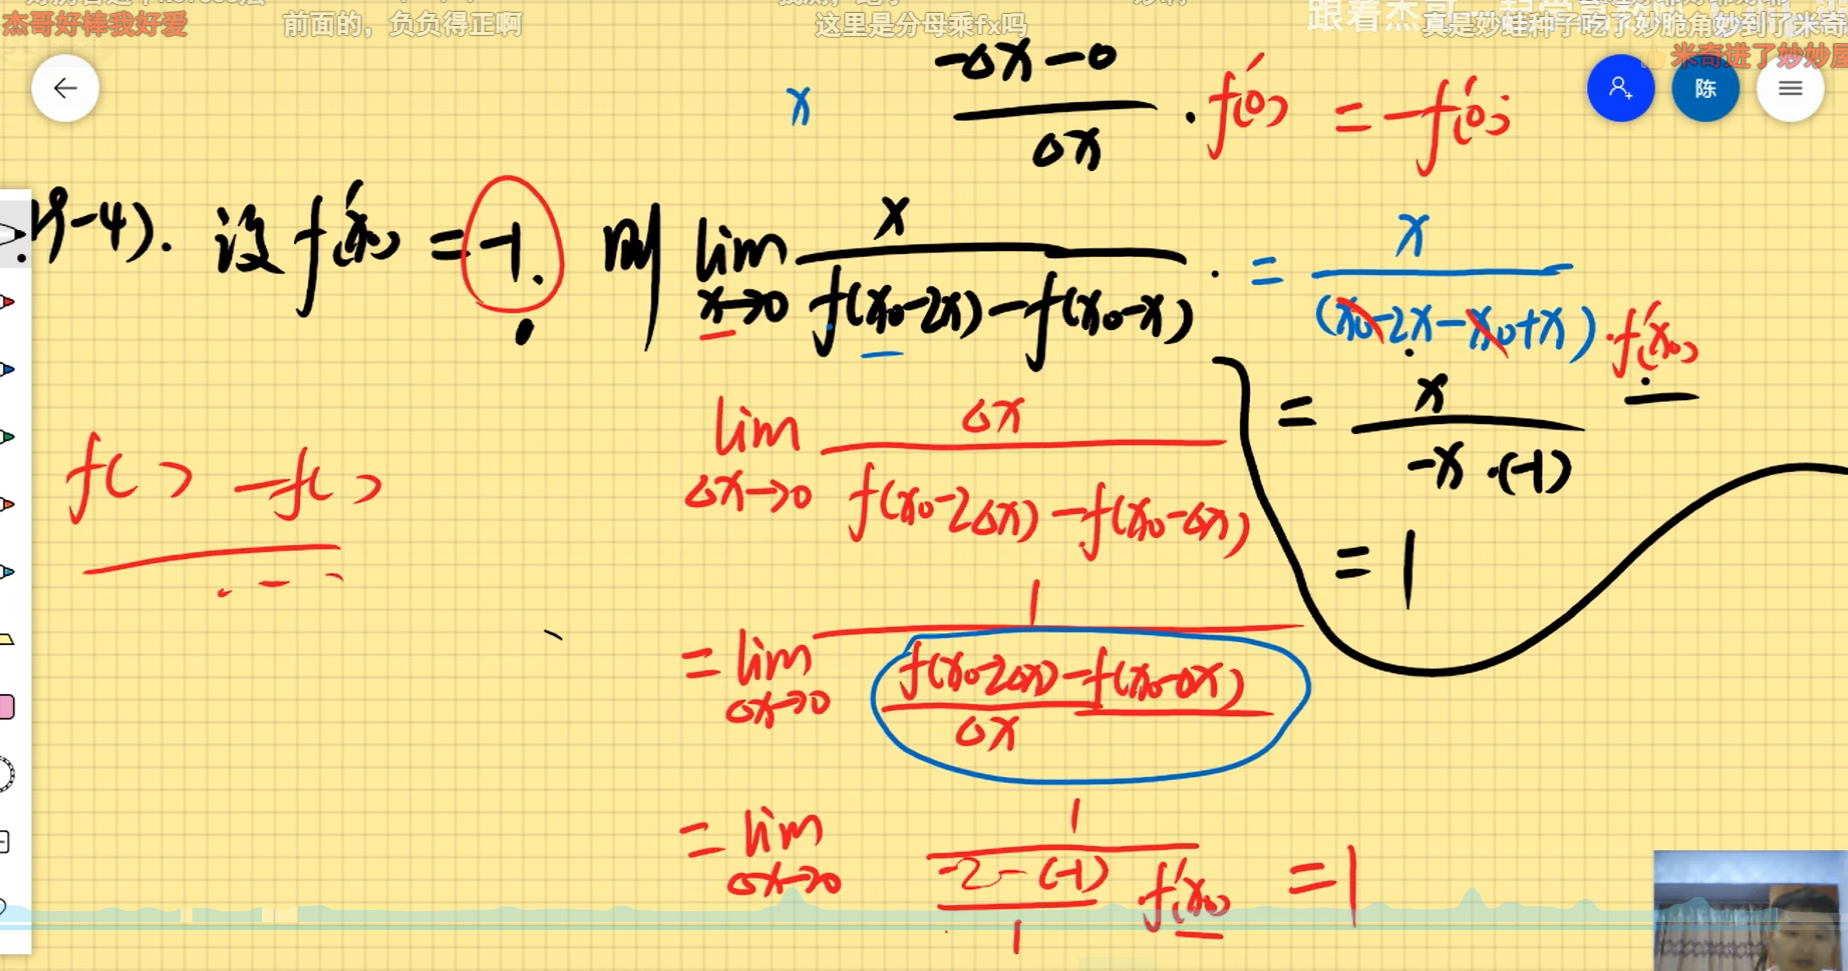 杰哥好棒我好爱
前面的，负负得正啊
这里是分母乘fx吗
跟着杰哥
真是妙蛙种子吃了妙脆角妙到了米奇
米奇进了妙妙屋
陈
x
(-Δx-0)/Δx · f'(0) = -f'(0)
例-4). 设 f'(x₀) = -1. 则 lim x→0 x/(f(x₀-2x)-f(x₀-x)) . = x/((x₀-2x-x₀+x)·f'(x₀))
= x/(-x·(-1))
= 1
f( ) -f( )
lim Δx→0 Δx/(f(x₀-2Δx)-f(x₀-Δx))
= lim Δx→0 1/((f(x₀-2Δx)-f(x₀-Δx))/Δx)
= lim Δx→0 1/((-2-(-1))/1 f'(x₀)) = 1